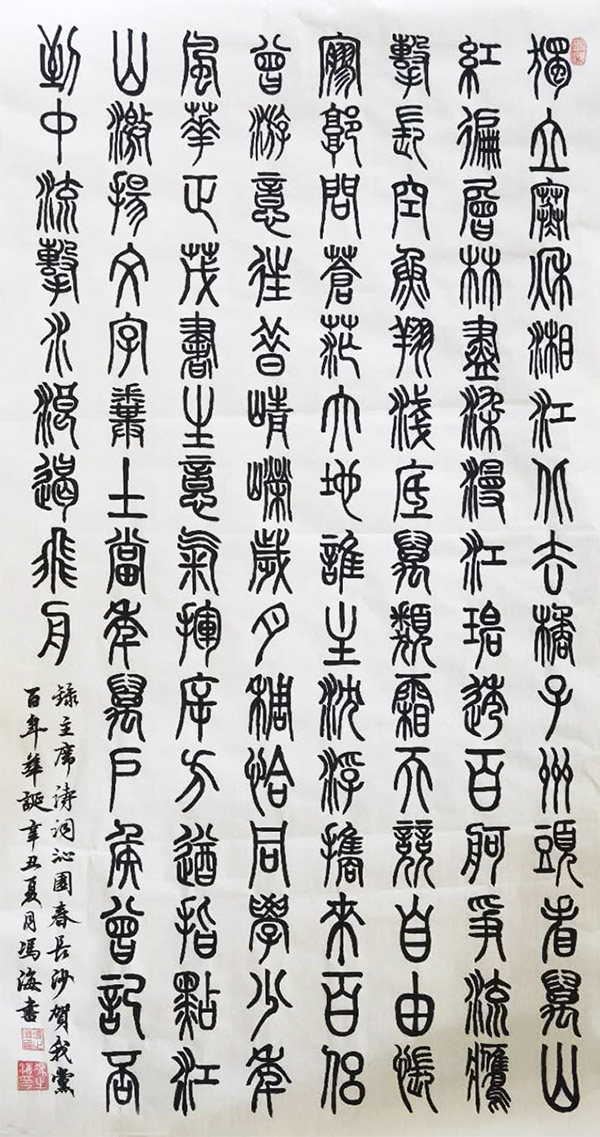 獨立寒秋湘江北去橘子州頭看萬山
紅遍層林盡染漫江碧透百舸爭流鷹
擊長空魚翔淺底萬類霜天競自由悵
寥郭問蒼茫大地誰主沈浮攜來百侶
曾游意往昔崢嶸歲月稠恰同學少年
風華正茂書生意氣揮斥方遒指點江
山激揚文字糞土當年萬戶侯曾記否
到中流擊水浪遏飛舟
錄主席詩詞沁園春長沙賀我黨
百年華誕辛丑夏月馮海書